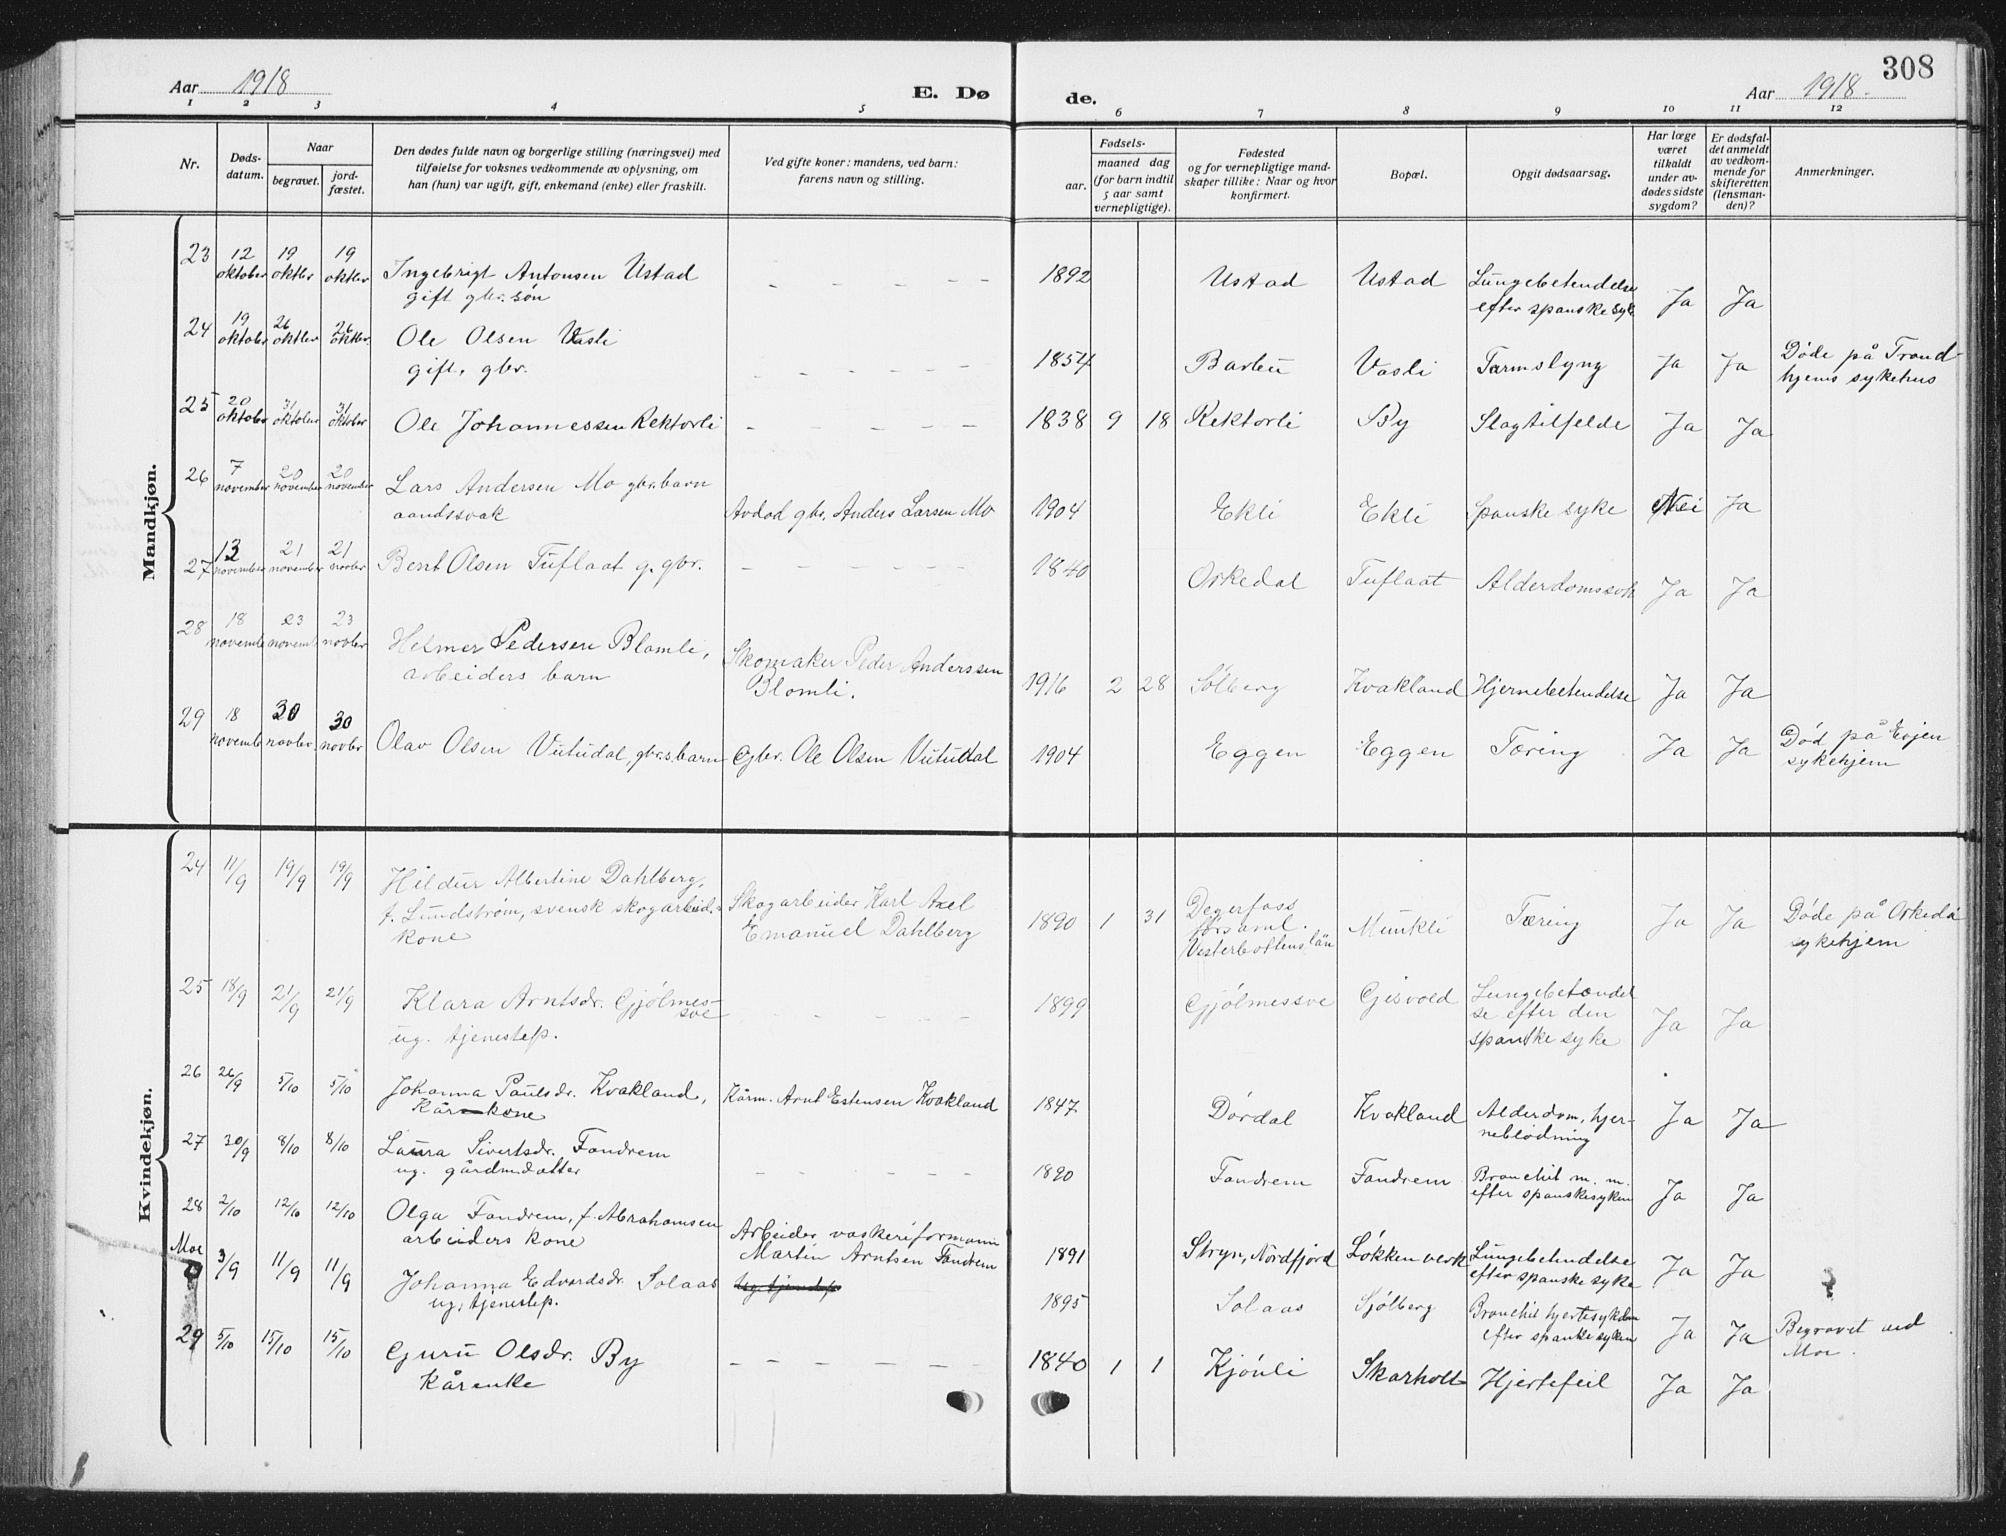 308
Aar 1918
E. Dø
de.
Aar 1918.
1 2 3 4 5 6 7 8 9 10 11 12
Nr.
Døds-
datum.
Naar
begravet.
jord-
fæstet.
Den dødes fulde navn og borgerlige stilling (næringsvei) med
tilføielse for voksnes vedkommende av oplysning, om
han (hun) var ugift, gift, enkemand (enke) eller fraskilt.
Ved gifte koner: mandens, ved barn:
farens navn og stilling.
Fødsels-
aar.
maaned dag
(for barn indtil
5 aar samt
vernepligtige).
Fødested
og for vernepligtige mand-
skaper tillike: Naar og hvor
konfirmert.
Bopæl.
Opgit dødsaarsag.
Har læge
været
tilkaldt
under av-
dødes sidste
sygdom?
Er dødsfal-
det anmeldt
av vedkom-
mende for
skifteretten
(lensman-
den)?
Anmerkninger.
Mandkjøn.
23 12 19 19
oktober oktbr oktbr Ingebrigt Antonsen Ustad - - - - - 1892 Ustad Ustad Lungebetendelse
gift gbr. søn efter spanske syk. Ja Ja
24 19 26 26
oktober oktbr oktbr. Ole Olsen Vasli
gift, gbr. - - - - - 1854 Barbu Vasli Tarmslyng Ja Ja Døde på Trond-
hjems sykehus
25 20 31 31
oktober oktober oktober Ole Johannessen Rektorli - - - - - 1838 9 18 Rektorli By Slagtilfelde Ja Ja
26 7 20 20
november november november Lars Andersen Mo gbr. barn
aandssvak Avdød gbr. Anders Larsen Mo 1904 Ekli Ekli Spanske syke Nei Ja
27 13 21 21
november november novbr Bent Olsen Tuflaat g. gbr. - - - - - - 1840 Orkedal Tuflaat Alderdomssvh Ja Ja
28 18 23 23
novembe novemb novbr Helmer Pedersen Blomli, Skomaker Peder Anderssen
arbeiders barn Blomli. 1916 2 28 Sølberg Kvakland Hjernebetendelse Ja Ja
29 18 30 30
novembe novbr. novbr Olav Olsen Vutudal, gbr.s. barn Gbr. Ole Olsen Vutudal 1904 Eggen Eggen Tæring Ja Ja Død på Evjen
sykehjem
Kvindekjøn.
24 11/9 19/9 19/9 Hildur Albertine Dahlberg,
f. Lundstrøm, svensk skogarbeid.- Skogarbeider Karl Axel
kone Emanuel Dahlberg 1890 1 31 Degerfoss
församl.
Vesterbottens län Munkli Tæring Ja Ja Døde på Orkedal
sykehjem
25 18/9 21/9 21/9 Klara Arntsdr. Gjølmes-
sve
ug. tjenestep. - - - - - 1899 Gjølmessve Gisvold Lungebetændel
se efter den
spanske syke Ja Ja
26 26/9 5/10 5/10 Johanna Paulsdr. Kvakland, Kårm. Arnt Estensen Kvakland 1847 Dørdal Kvakland Alderdom, hjer-
Kårkone neblødning Ja Ja
27 30/9 8/10 8/10 Laura Sivertsdr. Fandrem
ug. gårdmdatter - - - - - 1890 Fandrem Fandrem Bronchit m. m.
efter spanskesyken Ja Ja
28 2/10 12/10 12/10 Olga Fandrem, f. Abrahamsen Arbeider, vaskeriformann
arbeiders kone Martin Arntsen Fandrem 1891 Stryn, Nordfjord Løkken verk Lungebetendelse
efter spanske syke Ja Ja
Moe 3/9 11/9 11/9 Johanna Edvardsdr. Solaas ug. tjenestep
ug, tjenestep. 1895 Solaas Sjølberg Bronchit hjertesykdom
efter spanske syken Ja Ja Begravet ved
Moe.
29 5/10 15/10 15/10 Guru Olsdr. By - - - - - - 1840 1 1 Kjønli Skarholt Hjertefeil Ja Ja
Kårenke